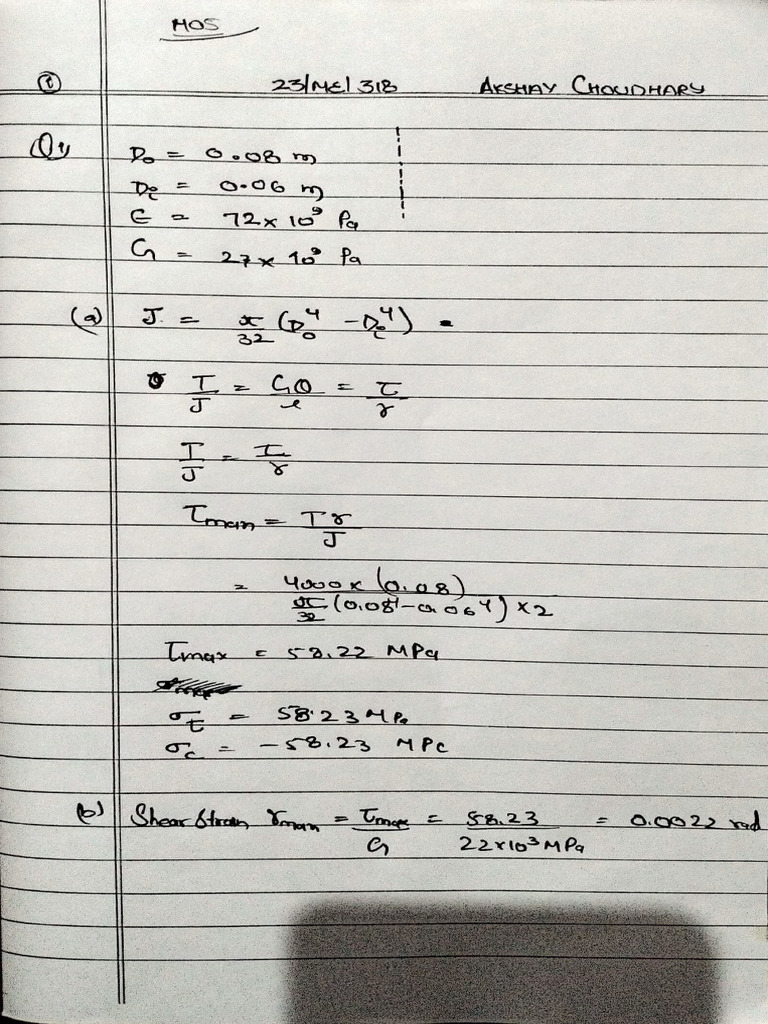 MOS
① 23/ME/318 AKSHAY CHOUDHARY
Q1 D₀ = 0.08 m
Dᵢ = 0.06 m
E = 72 × 10⁹ Pa
G = 27 × 10⁹ Pa
(a) J = π/32 (D₀⁴ - Dᵢ⁴) =
T/J = Gθ/l = τ/r
T/J = τ/r
τman = Tr/J
= 4000 × (0.08) / π/32 (0.08⁴ - 0.06⁴) × 2
τmax = 58.22 MPa
σt = 58.23 MPa
σc = -58.23 MPc
(b) Shear Strain γman = τmax/G = 58.23 / 22×10³ MPa = 0.0022 rad